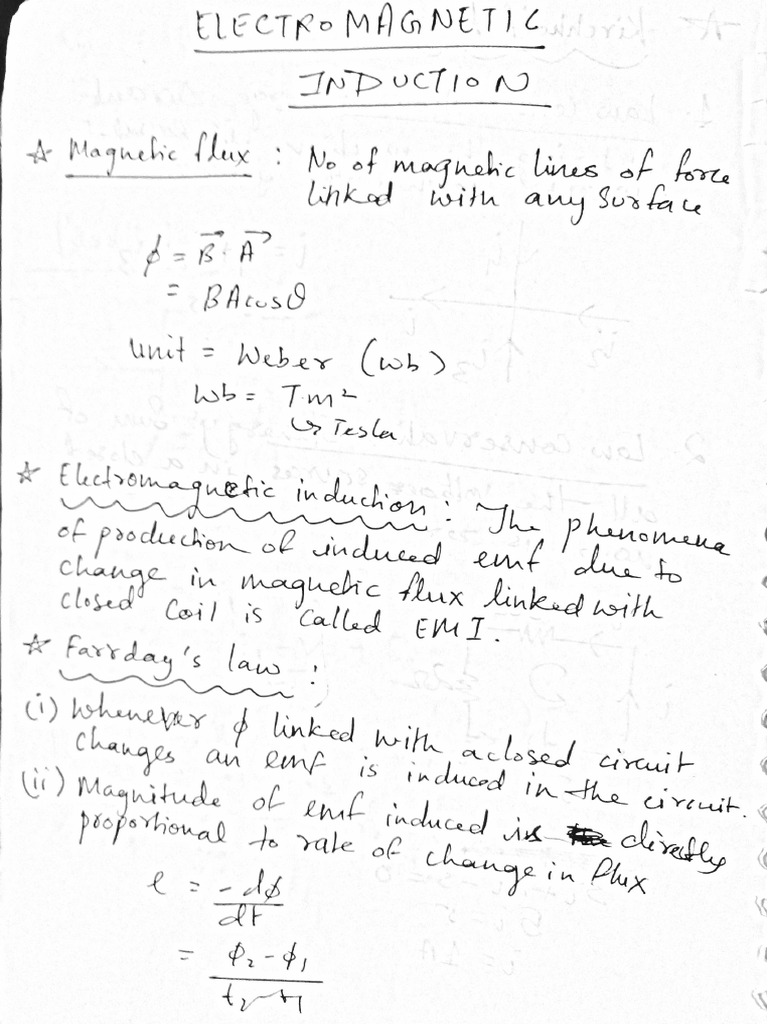 ELECTROMAGNETIC
INDUCTION
☆ Magnetic flux : No of magnetic lines of force
linked with any Surface
ϕ = B⃗ · A⃗
= BAcosθ
Unit = Weber (wb)
Wb = T·m²
↳ Tesla
☆ Electromagnetic induction : The phenomena
of production of induced emf due to
change in magnetic flux linked with
closed coil is called EMI.
☆ Farrday's law :
(i) Whenever ϕ linked with a closed circuit
changes an emf is induced in the circuit.
(ii) Magnitude of emf induced is directly
proportional to rate of change in flux
e = -dϕ/dt
= ϕ₂-ϕ₁/t₂-t₁